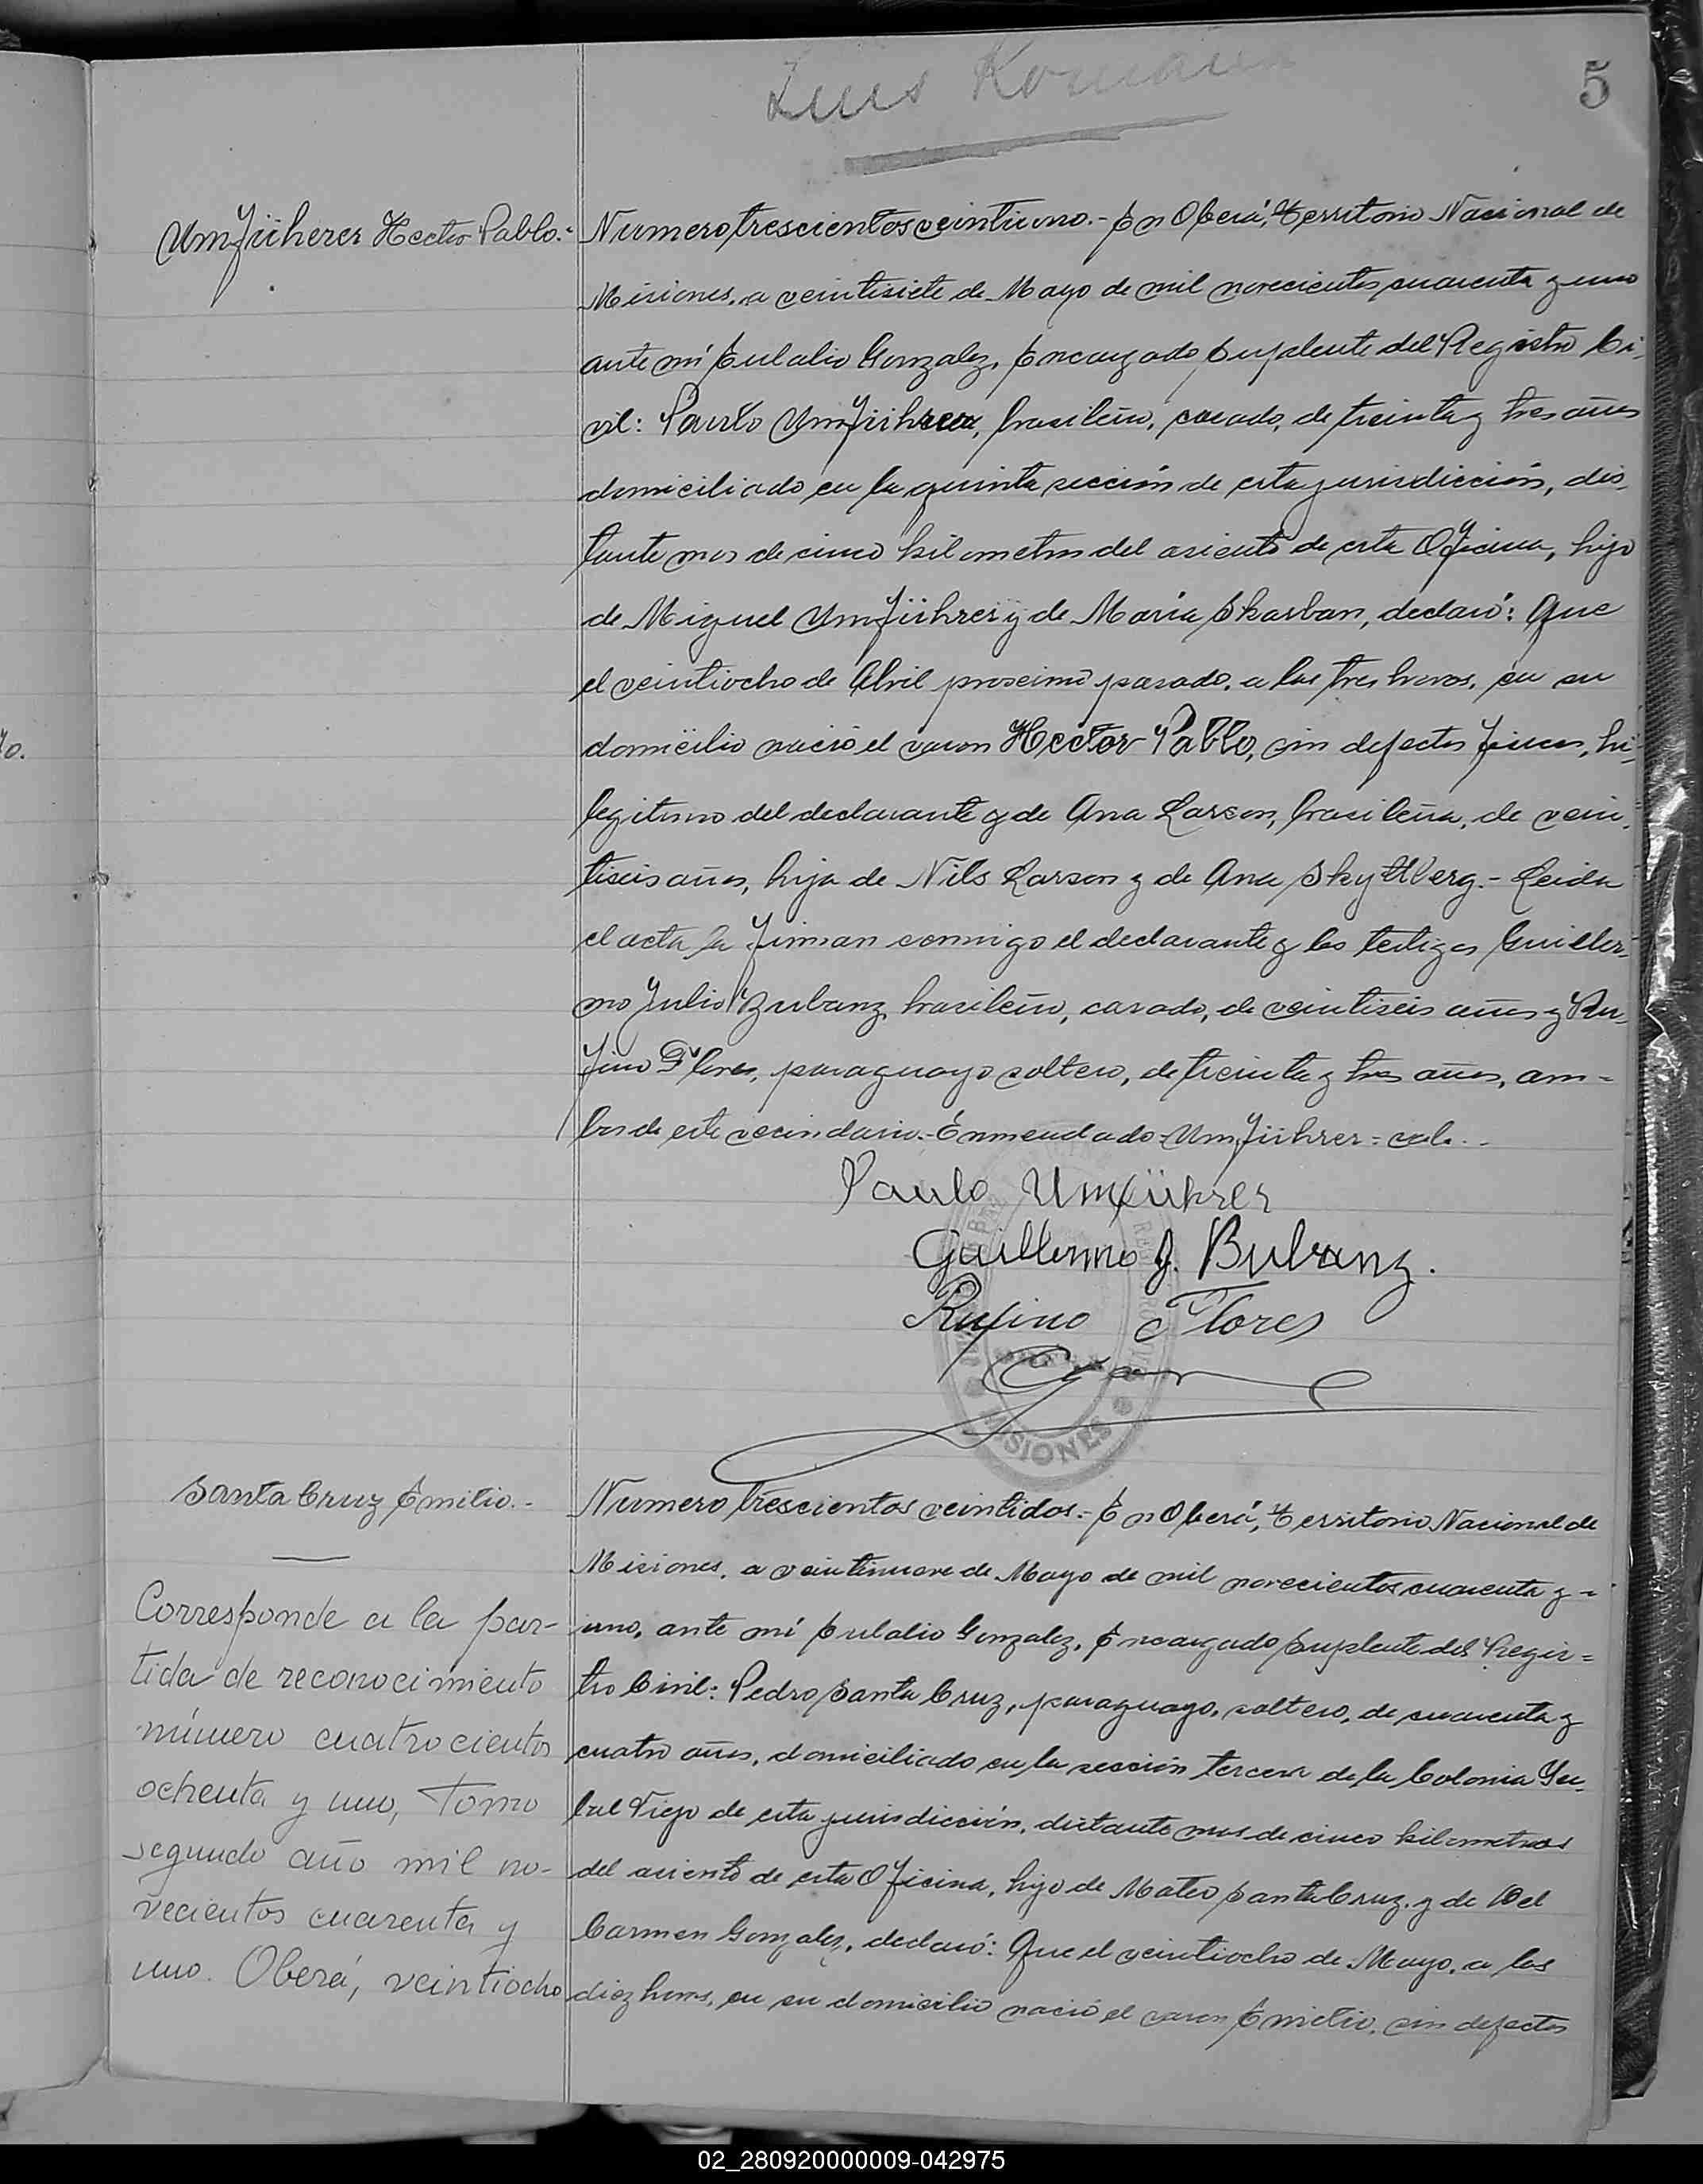 Luis Romain
5
Umfüherer Hector Pablo.-
Numero trescientos veintiuno.- En Oberá, Territorio Nacional de
Misiones, a veintisiete de Mayo de mil novecientos cuarenta y uno
ante mí Eulalio Gonzalez, Encargado Suplente del Registro Ci-
vil: Paulo Umführer, brasileño, casado, de treinta y tres años
domiciliado en la quinta sección de esta jurisdicción, dis-
tante mas de cinco kilometros del asiento de esta Oficina, hijo
de Miguel Umführer y de María Skarban, declaró: Que
el veintiocho de Abril proximo pasado, a las tres horas, en su
domicilio nació el varon Hector Pablo, sin defectos fisicos, hi-
legitimo del declarante y de Ana Larson, brasileña, de vein-
tiseis años, hija de Nils Larson y de Ana Skyttberg.- Leida
el acta la firman conmigo el declarante y los testigos Guiller-
mo Julio Bubanz, brasileño, casado, de veintiseis años y Ru-
fino Flores, paraguayo soltero, de treinta y tres años, am-
bos de este vecindario.- Enmendado = Umführer = vale..
Paulo Umführer
Guillermo J. Bubanz.
Rufino Flores
MISIONES
Santa Cruz Emilio.-
Numero trescientos veintidos.- En Oberá, Territorio Nacional de
Misiones, a veintinueve de Mayo de mil novecientos cuarenta y -
uno, ante mí Eulalio Gonzalez, Encargado Suplente del Regis-
tro Civil: Pedro Santa Cruz, paraguayo, soltero, de cuarenta y
cuatro años, domiciliado en la sección tercera de la Colonia Yer-
bal Viejo de esta jurisdicción, distante mas de cinco kilometros
del asiento de esta Oficina, hijo de Mateo Santa Cruz, y de Del
Carmen Gonzalez, declaró: Que el veintiocho de Mayo, a las
diez horas, en su domicilio nació el varon Emilio, sin defectos
Corresponde a la par-
tida de reconocimiento
número cuatrocientos
ochenta y uno, Tomo
segundo año mil no-
vecientos cuarenta y
uno. Oberá, veintiocho
02_280920000009-042975